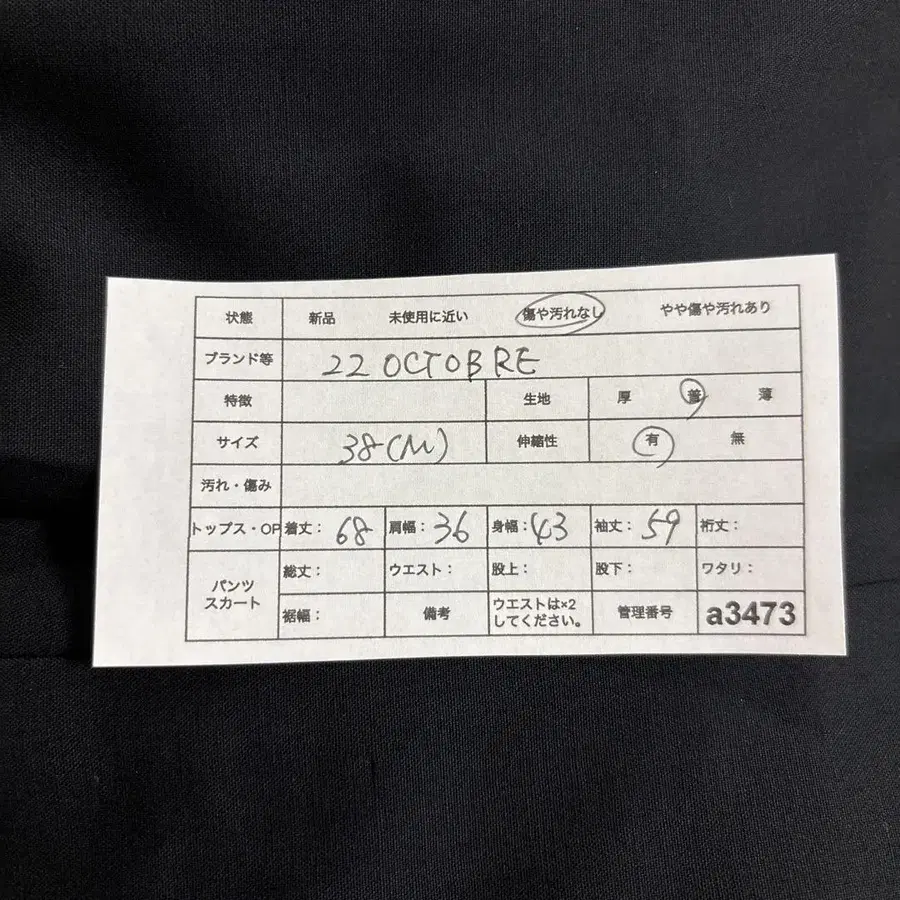 状態 新品 未使用に近い 傷や汚れなし やや傷や汚れあり
ブランド等 22 OCTOBRE
特徴 生地 厚 普 薄
サイズ 38(M) 伸縮性 有 無
汚れ・傷み
トップス・OP 着丈: 68 肩幅: 36 身幅: 43 袖丈: 59 裄丈:
パンツ スカート 総丈: ウエスト: 股上: 股下: ワタリ:
裾幅: 備考 ウエストは×2 してください。 管理番号 a3473